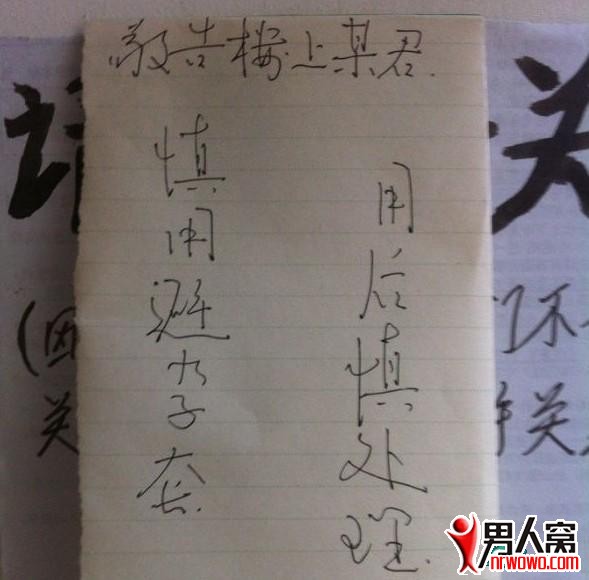 敬告楼上某君.
慎用避孕套.
用后慎处理.
关
(因
关
关
男人窝
nrwowo.com